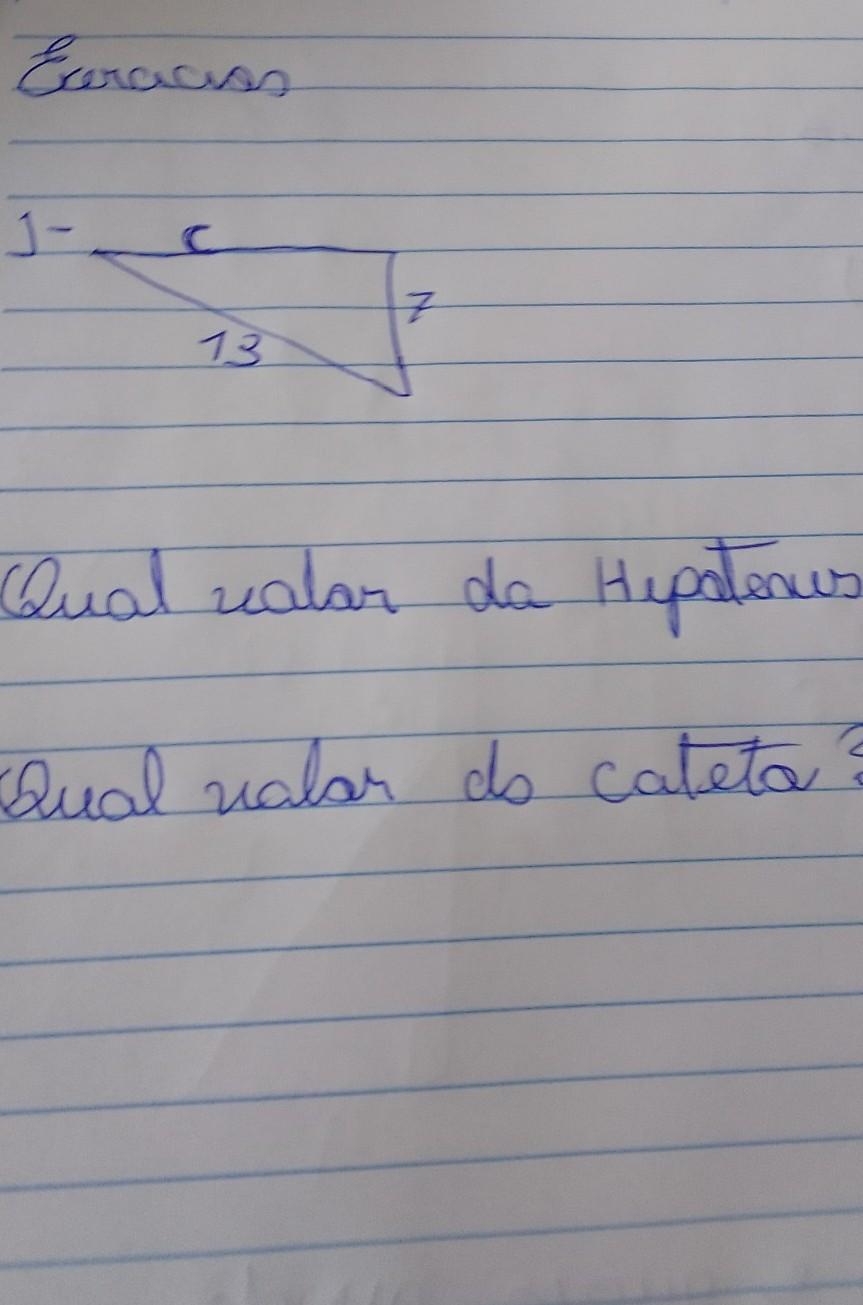 Exercicios
1- c
7
13
Qual valor da Hipotenus
Qual valor do cateto?